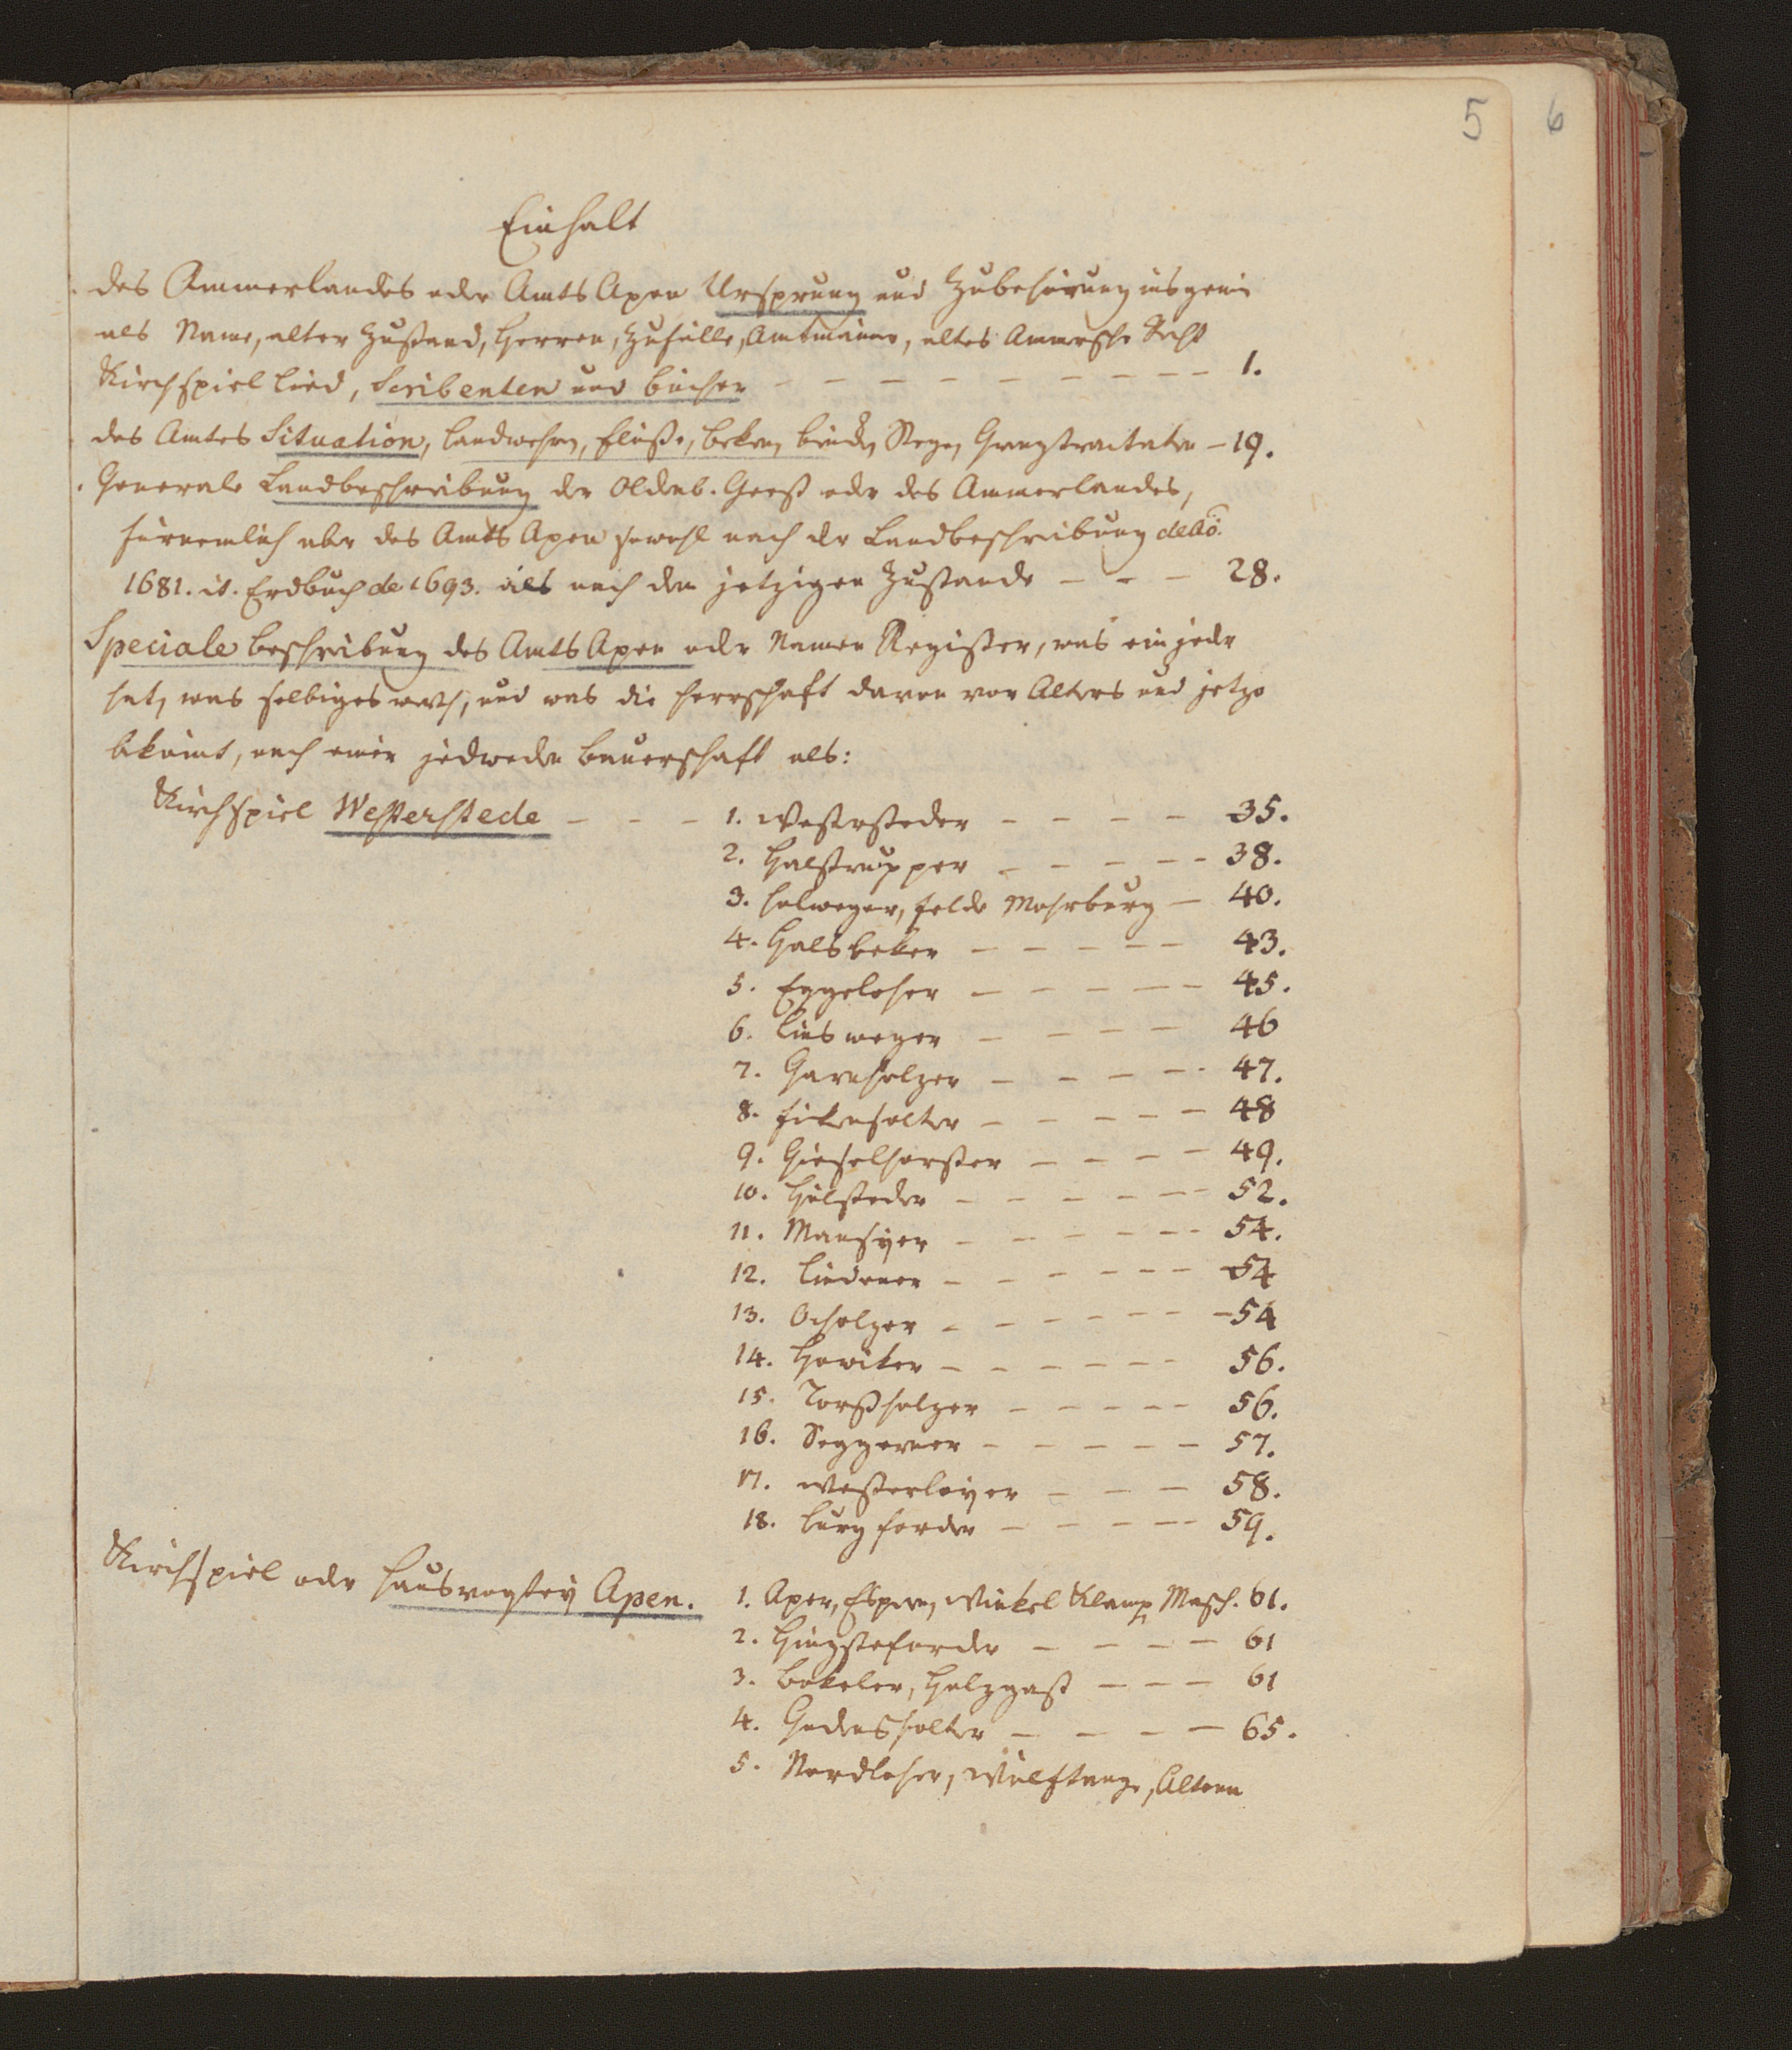 5 6
Einhalt
des Ammerlandes oder Amts Apen Ursprung und Zubehörung ins gemein
als Name, alter Zustand, Herren, Zufälle, Amtmänner, altes Ammersche Recht
Kirchspiel Lied, Scribenten und bücher - - - - - - - - 1.
des Amtes Situation, Landwehren, Flüße, beken, Stege, Grenztractaten - 19.
Generale Landbeschreibung der Oldenb. Geest oder des Ammerlandes,
fürnemlich aber des Amts Apen sowohl nach der Landbeschreibung de Aõ.
1681. it. Erdbuch de 1693. als nach dem jetzigen Zustande - - - 28.
Speciale beschreibung des Amts Apen oder Namen Register, was ein jeder
hat, was selbiges werth, und was die Herrschaft davon von Alters und jetzo
bekömt, nach einer jedweden bauerschaft als:
Kirchspiel Westerstede - - - 1. Westersteder - - - - 35.
2. Halstrupper - - - - - 38.
3. Holweger, Felde Mohrburg - 40.
4. Halsbeker - - - - - 43.
5. Eggeloher - - - - - 45.
6. Linsweger - - - - 46
7. Garnholzer - - - - 47.
8. Fikensolter - - - - - 48
9. Gieselhorster - - - - 49.
10. Hülsteder - - - - - - 52.
11. Mansyer - - - - - - 54.
12. Lindener - - - - - - 54
13. Ocholzer - - - - - - 54
14. Howiker - - - - - - 56.
15. Torßholzer - - - - - 56.
16. Seggerner - - - - - 57.
17. Westerloyer - - - - 58.
18. burgforder - - - - - 59.
Kirchspiel oder Hausvogtey Apen. 1. Aper, Espern, Winkel Klamp Masch. 61.
2. Hingsteforder - - - - 61
3. bokeler, Holzgast - - - 61
4. Godensholter - - - - 65.
5. Nordloher, Wulftange,